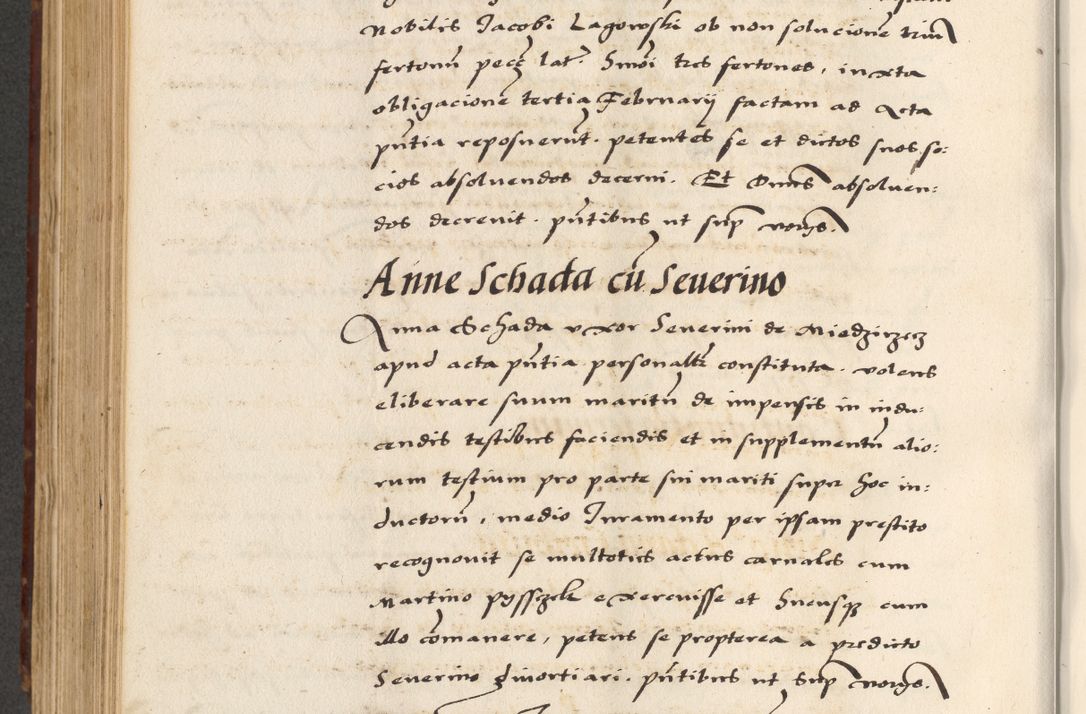 Nobilis Jacobi Lagowski ob non solucione triū
fertonū pecę lat. Smoi tres fertones, iuxta
obligacionē tertia Februarij factam ad Acta
pn̄tia reposuerūt. petentes se et dictos suos so:
cios absoluendos decerni. Et Dn̄us absoluen:
dos decreuit. pn̄tibus ut sup̄
Anne Schada cū Seuerino
Anna Schada vxor Seuerini de Miedzirzecz
apud acta pn̄tia personalr̄ constituta. volens
eliberare suum maritū de impensis in indu:
cendis testibus faciendis et in supplementū alio:
rum testium pro parte sui mariti super hoc in:
ductorū, medio Juramento per ipsam prestito
recognouit se multotics actus carnales cum
Martino pyssczek exercuisse et hucusqꝫ cum
illo cōmanere, petens se propterea a predicto
Seuerino diuortiari. pn̄tibus ut Sup̄